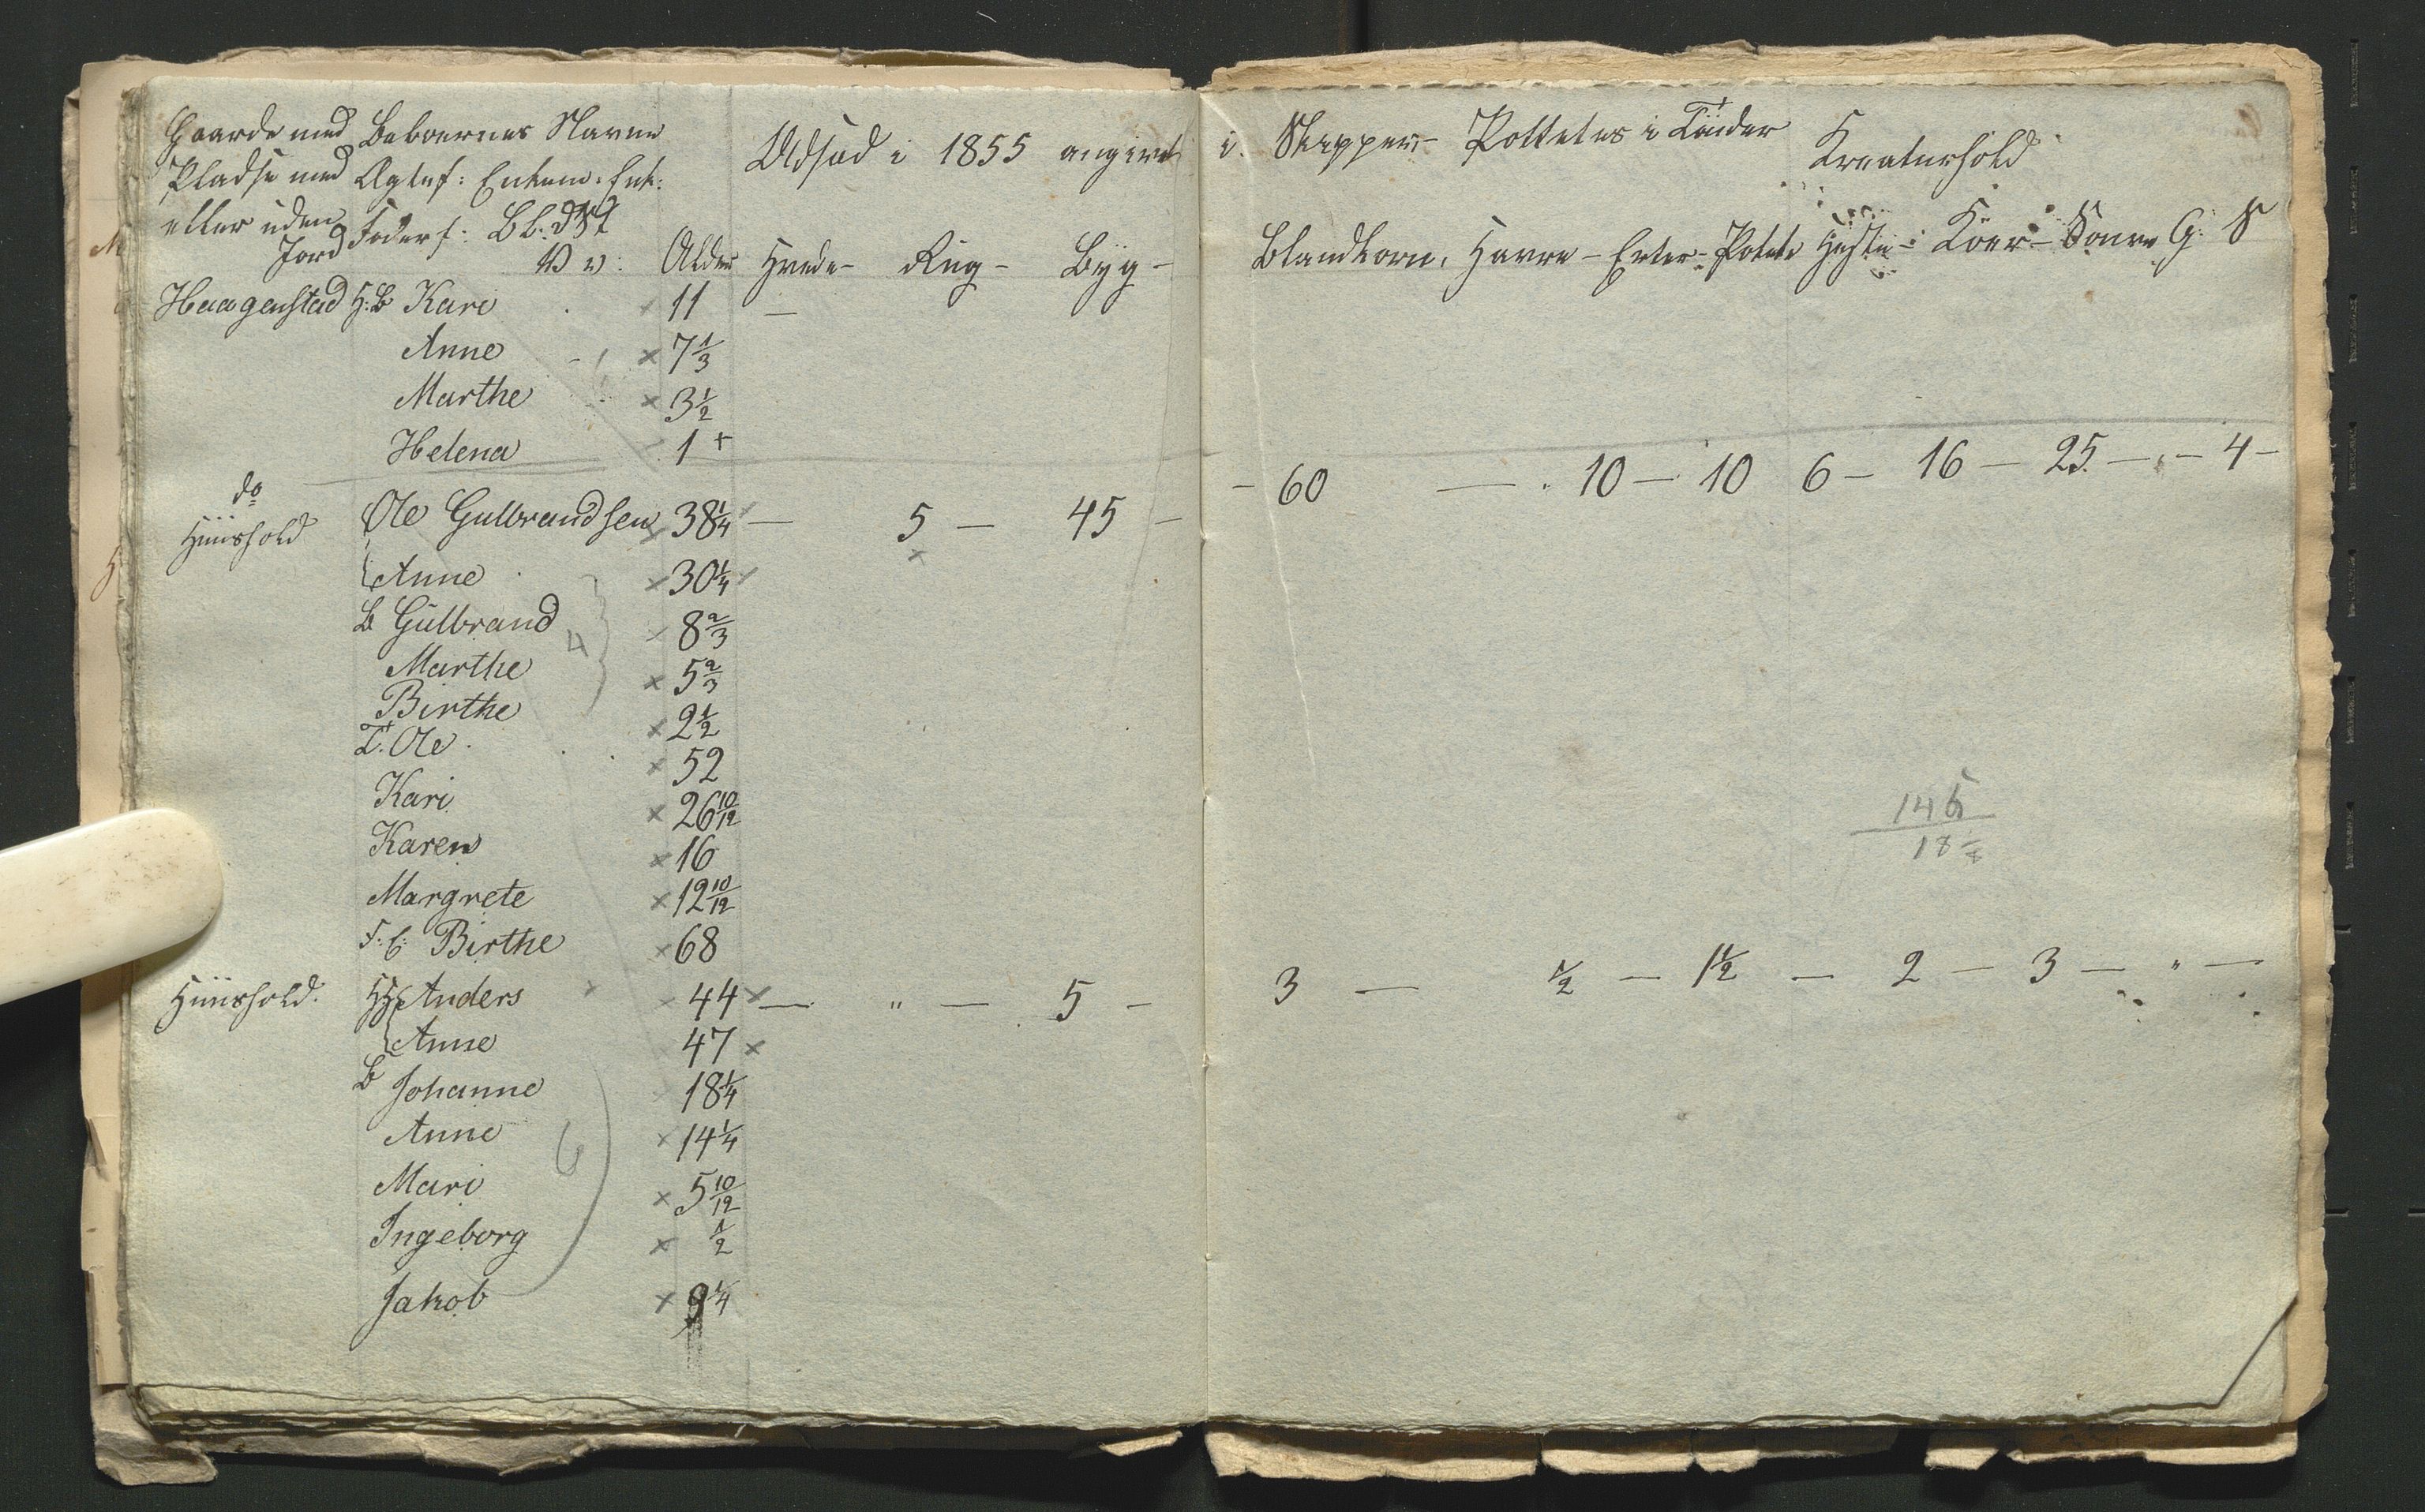 Gaarde med Beboernes Navne
Pladse med Ægtef: Enkem: Enk:
eller uden Foderf: Bb. DST
Jord
Udsæd i 1855 angivet i. Skepper, Pottetes i Tönder
Kreaturhold
Alder Hvede - Rug - Byg - Blandkorn, Havre - Erter - Potete Heste - Köer - Souve G. S
Haagenstad H: B Kari 11 —
Anne × 7 1/3
Marthe × 3 1/2
Helena 1 +
do
Huushold Ole Gulbrandsen 38 1/4 — 5 — 45 — 60 — 10 — 10 6 — 16 — 25 — " — 4 —
Anne × 30 1/4
B Gulbrand 4 8 2/3
Marthe × 5 2/3
Birthe × 2 1/2
T. Ole × 52
Kari × 26 10/12
Karen × 16
145
Margrete × 12 10/12
F. b: Birthe × 68
Huushold. Anders 44 × — " — 5 — 3 — 1/2 — 1 1/2 — 2 — 3 — " —
Anne 47 ×
B Johanne 18 1/4
Anne × 14 1/4
6
Mari × 5 10/12
Ingeborg × 1/2
Jakob × 9 1/4